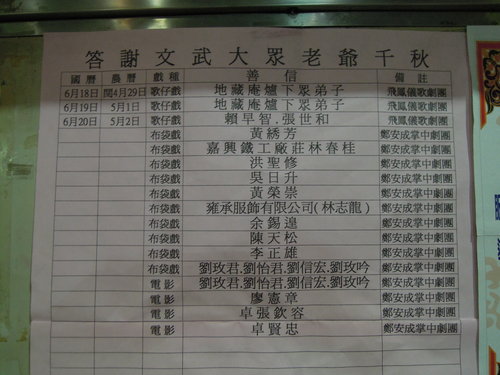 答謝文武大眾老爺千秋
國曆 農曆 戲種 善信 備註
6月18日 閏4月29日 歌仔戲 地藏庵爐下眾弟子 飛鳳儀歌劇團
6月19日 5月1日 歌仔戲 地藏庵爐下眾弟子 飛鳳儀歌劇團
6月20日 5月2日 歌仔戲 賴早智.張世和 飛鳳儀歌劇團
布袋戲 黃綉芳 鄭安成掌中劇團
布袋戲 嘉興鐵工廠莊林春桂 鄭安成掌中劇團
布袋戲 洪聖修 鄭安成掌中劇團
布袋戲 吳日升 鄭安成掌中劇團
布袋戲 黃榮崇 鄭安成掌中劇團
布袋戲 雍承服飾有限公司(林志龍) 鄭安成掌中劇團
布袋戲 余錫湟 鄭安成掌中劇團
布袋戲 陳天松 鄭安成掌中劇團
布袋戲 李正雄 鄭安成掌中劇團
布袋戲 劉玫君.劉怡君.劉信宏.劉玫吟 鄭安成掌中劇團
電影 劉玫君.劉怡君.劉信宏.劉玫吟 鄭安成掌中劇團
電影 廖憲章 鄭安成掌中劇團
電影 卓張欽容 鄭安成掌中劇團
電影 卓賢忠 鄭安成掌中劇團